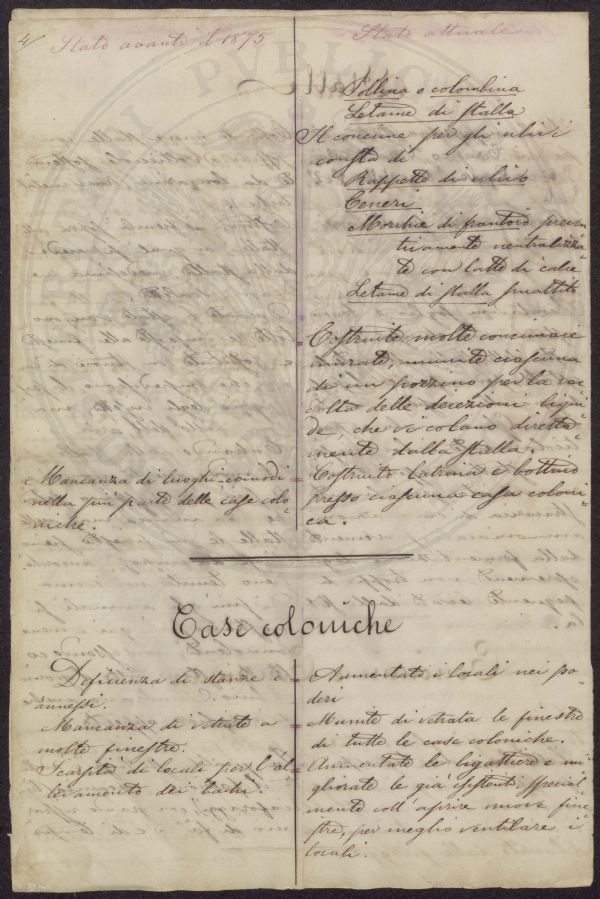 4/
Stato avanti il 1875
Stato attuale
Pollina o colombina
Letame di stalla
Il concime per gli ulivi
consta di
Raspette di ulivo
Ceneri
Morchie di frantoio preven=
tivamente neutralizza=
te con latte di calce
Letame di stalla smaltito
Costruite molte concimaie
murate, munite ciascuna
di un pozzino per la rac
colta delle deiezioni liqui
de, che vi colano diretta=
mente dalla stalla.
Mancanza di luoghi comodi
nella più parte delle case colo=
niche.
Costruite latrina e bottino
presso ciascuna casa coloni=
ca.
Case coloniche
Deficienza di stanze e
annessi.
Mancanza di vetrate a
molte finestre.
Scarsità di locali per l'al=
levamento dei bachi.
Aumentato i locali nei po=
deri
Munite di vetrata le finestre
di tutte le case coloniche.
Aumentate le bigattiere e mi=
gliorate le già esistenti, special=
mente coll'aprire nuove fine=
stre, per meglio ventilare i
locali.